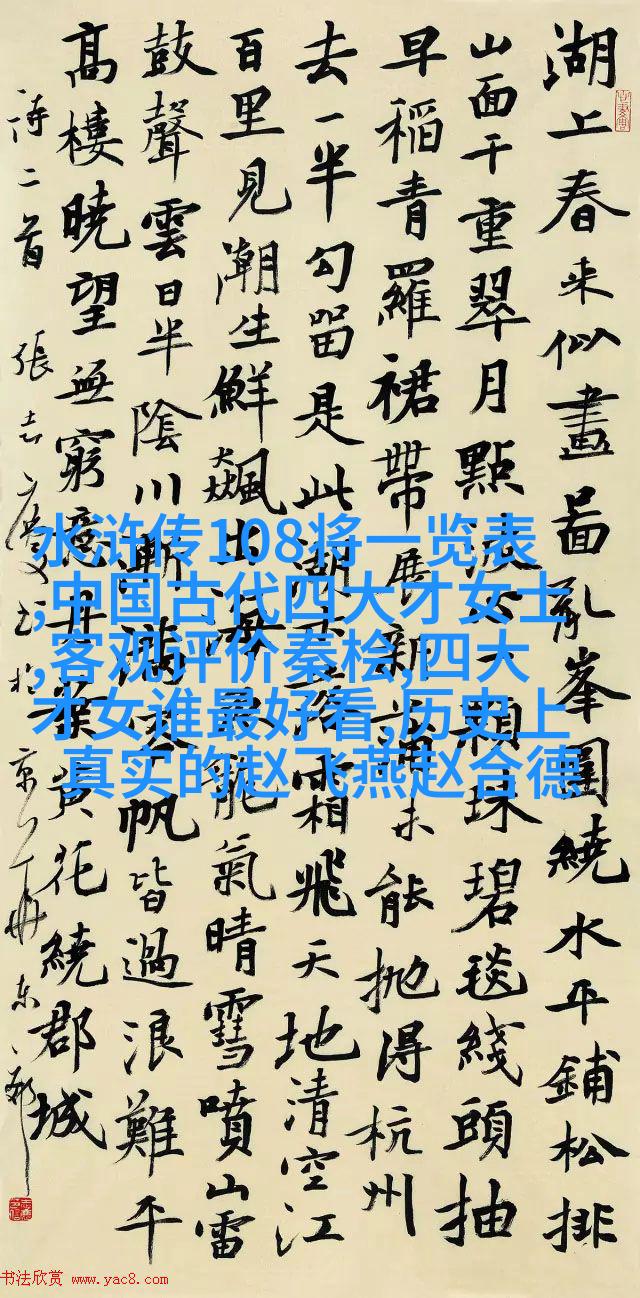 湖上春来似畫啚亂峯圍繞水平鋪松排
山面千重翠月點波心一顆珠碧毯綫頭抽
早稻青羅裙帶展新蒲未能抛得杭州
去一半勾留是此湖玉露霜飛天地清空江
百里見潮生鮮飆出海魚龍氣晴雪噴山雷
鼓聲雲日半陰川漸滿客帆皆過浪難平
高樓曉望無窮意丹葉黄花繞郡城
诗二首 張志
水浒传108将一览表
,中国古代四大才女士
,客观评价秦桧,四大
才女谁最好看,历史上
真实的赵飞燕赵合德
书法欣赏 www.yac8.com